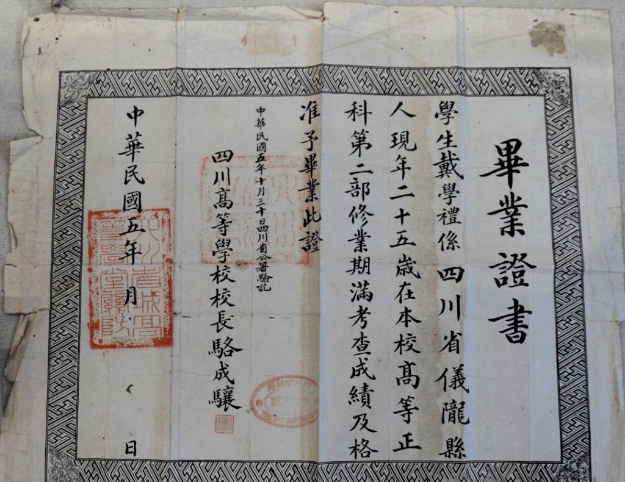 畢業證書
學生戴學禮係四川省儀隴縣
人現年二十五歲在本校高等正
科第二部修業期滿考查成績及格
准予畢業此證
中華民國五年十月三十日四川省公署驗訖
四川高等學校校長駱成驤
中華民國五年 月 日